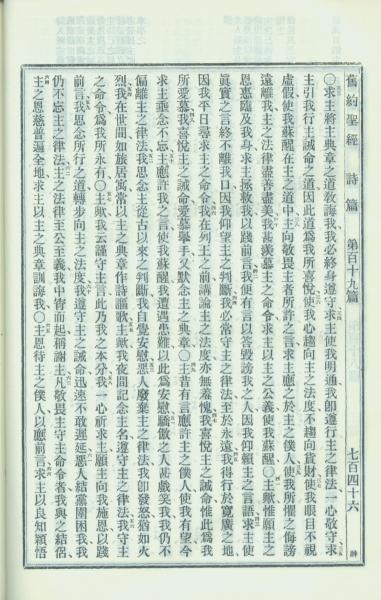 舊約聖經 詩篇 第百十九篇 七百四十六
○求主將主典章之道敎誨我我必終身遵守求主使我明通我卽遵行主之律法一心敬守求
主引我行主誡命之道因此道爲我所喜悅使我心趨向主之法度不趨向貨財使我眼目不視
虛假使我蘇醒在主之道中主向敬畏主者所許之言求主應之於主之僕人使我所懼之侮謗
遠離我主之法律盡善盡美我甚羨慕主之命令求主以主之公義使我蘇醒○主歟惟願主之
恩惠臨及我身求主拯救我以踐前言我便有言以答毀謗我之人因我仰賴主之言語求主使
眞實之言終不離我口因我仰望主之判斷我必常守主之律法至於永遠我得行於寬廣之地
因我平日尋求主之命令我在列王之前講論主之法度亦無羞愧我喜悅主之誡命惟此爲我
所愛慕我喜悅主之誡命愛慕舉手又默念主之典章○主昔有言應許主之僕人使我有望今
求主垂念不忘主應許我之言使我蘇醒我雖遭遇患難以此爲安慰驕傲之人甚戲笑我我仍不
偏離主之律法我思念主從古以來之判斷我自覺安慰惡人廢棄主之律法我卽發怒猶如火
烈我在世間如旅居寓常以主之典章作詩謳歌主歟我夜間記念主名遵守主之律法我守主
之命令爲我所永有○主歟我云謹守主言此乃我之本分我一心祈求願主向我施恩以踐
前言我思念所行之道轉步向主之法度我遵守主之誡命迅速不敢遲延惡人結黨圍困我我
仍不忘主之律法因主之律法至公至義我中宵而起稱謝主凡敬畏主守主命令者我與之結侶
主之恩慈普遍全地求主以主之典章訓誨我○主恩待主之僕人以應前言求主以良知穎悟